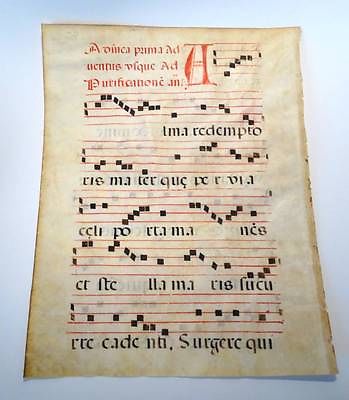 A dn̄ica prima Ad
uentus vsque Ad
Purificationē añ.
A
lma redempto
ris ma ter quę pe r vi a
cęli po rta ma nēs
et ste lla ma ris sucu
rre cade nti, Surgere qui